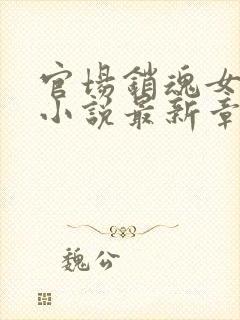 官場銷魂女
小說最新章
魏公